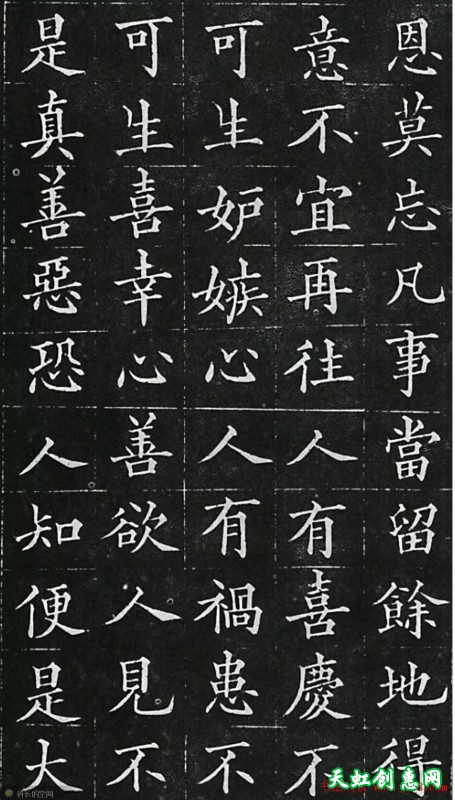 恩莫忘凡事當留餘地得
意不宜再往人有喜慶不
可生妒嫉心人有禍患不
可生喜幸心善欲人見不
是真善惡恐人知便是大
天虹创惠网
科长的空间